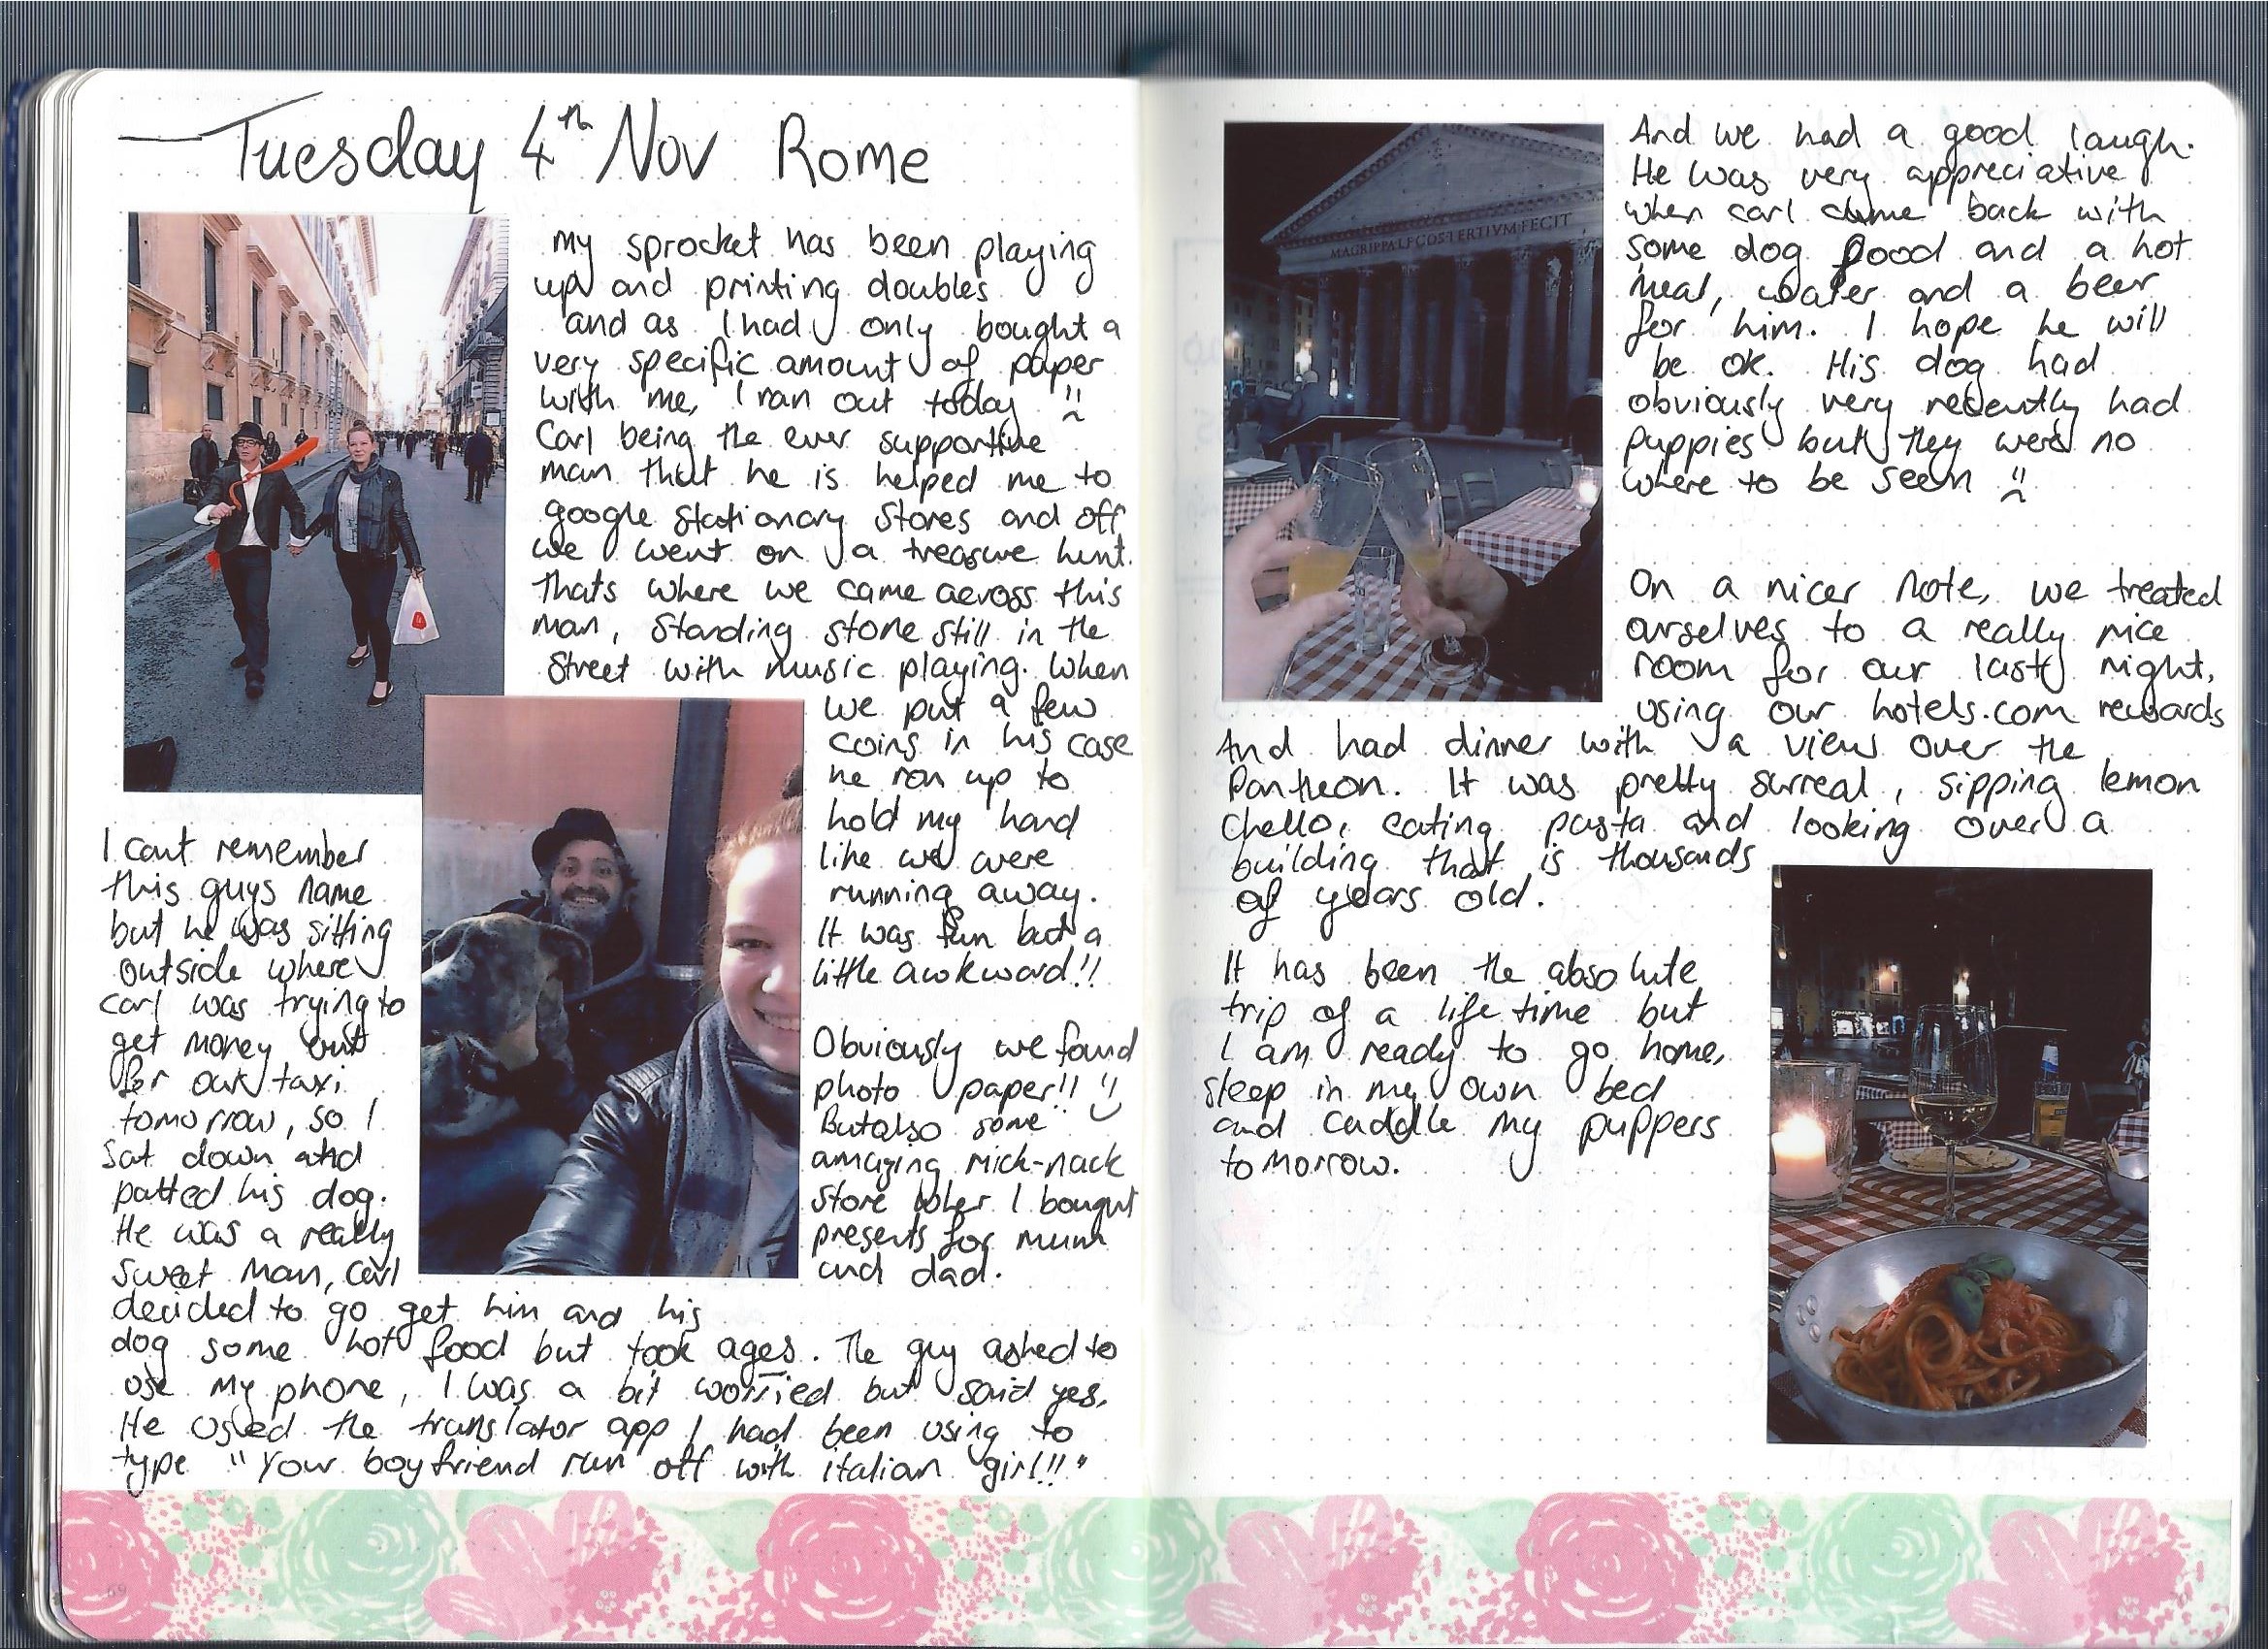 Tuesday 4th Nov Rome
my sprocket has been playing
up and printing doubles
and as I had only bought a
very specific amount of paper
with me, I ran out today
Carl being the ever supportive
man that he is helped me to
google stationary stores and off
we went on a treasure hunt.
thats where we came across this
man, standing stone still in the
street with music playing. When
we put a few
coins in his case
he ran up to
hold my hand
like we were
running away.
It was fun but a
little awkward!!
Obviously we found
photo paper!!
But also some
amazing nick-nack
store wher I bought
presents for mum
and dad.
I cant remember
this guys name
but he was sitting
outside where
carl was trying to
get money out
for our taxi
tomorrow, so I
sat down and
patted his dog.
He was a really
sweet man, carl
decided to go get him and his
dog some hot food but took ages. The guy asked to
use my phone, I was a bit worried but said yes.
He used the translator app I had been using to
type "Your boyfriend run off with italian girl!!"
69
MAGRIPPALFCOSTERTIVMFECIT
And we had a good laugh.
He was very appreciative
when carl came back with
some dog food and a hot
meal, water and a beer
for him. I hope he will
be ok. His dog had
obviously very recently had
puppies but they were no
where to be seen
On a nicer note, we treated
ourselves to a really nice
room for our last night,
using our hotels.com rewards
And had dinner with a view over the
Pantheon. It was pretty surreal, sipping lemon
chello, eating pasta and looking over a
building that is thousands
of years old.
It has been the absolute
trip of a life time but
I am ready to go home,
sleep in my own bed
and cuddle my puppers
tomorrow.